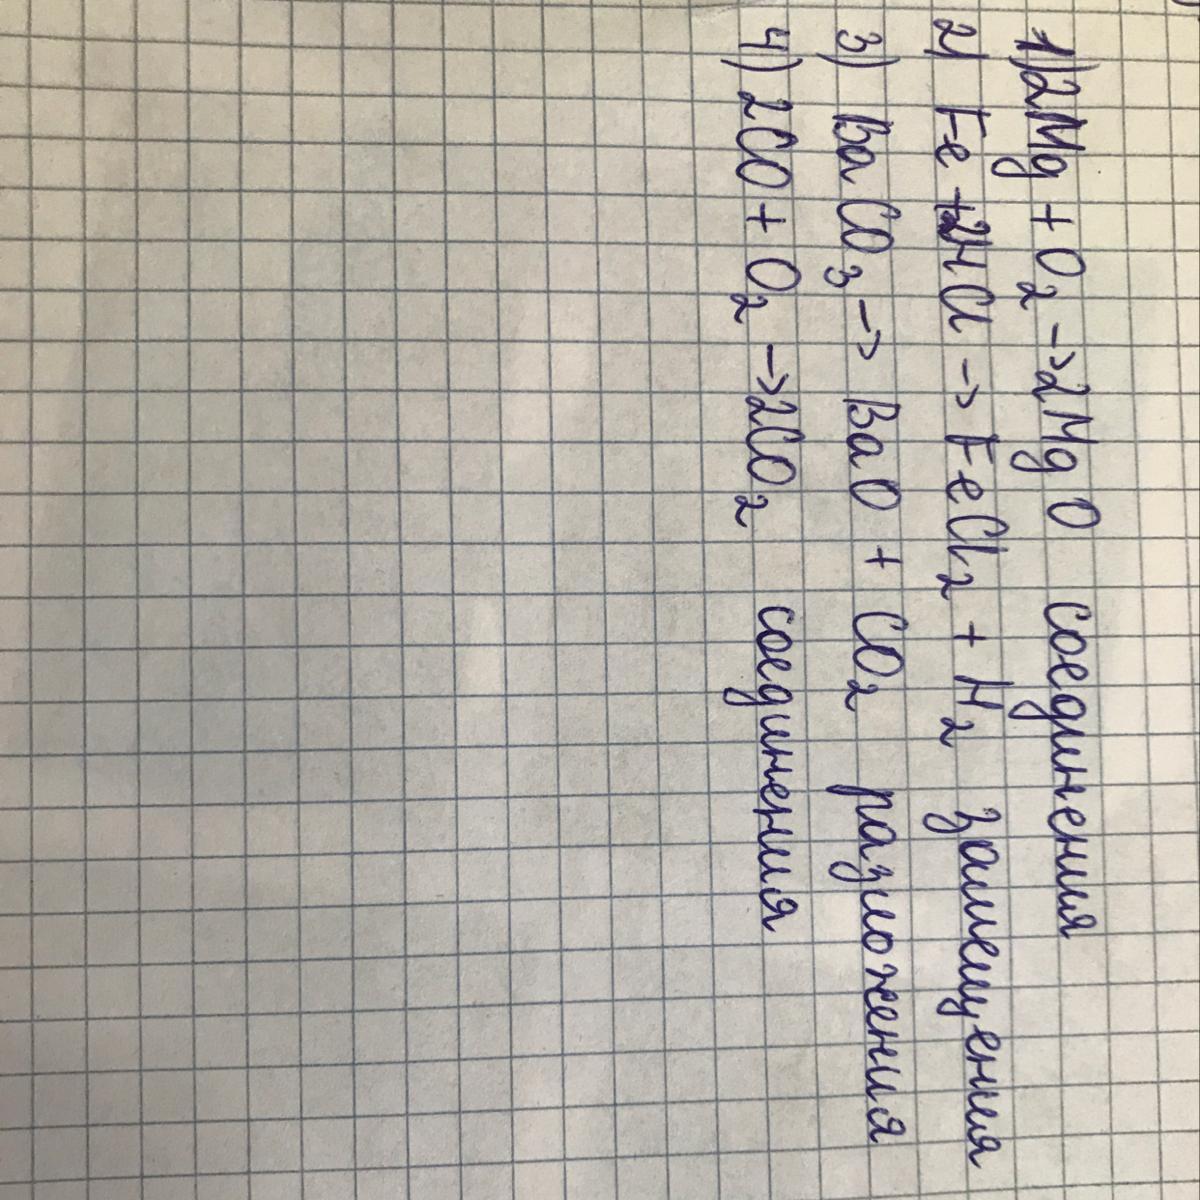 1) 2Mg + O₂ -> 2MgO соединения
2) Fe + 2HCl -> FeCl₂ + H₂ замещения
3) BaCO₃ -> BaO + CO₂ разложения
4) 2CO + O₂ -> 2CO₂ соединения